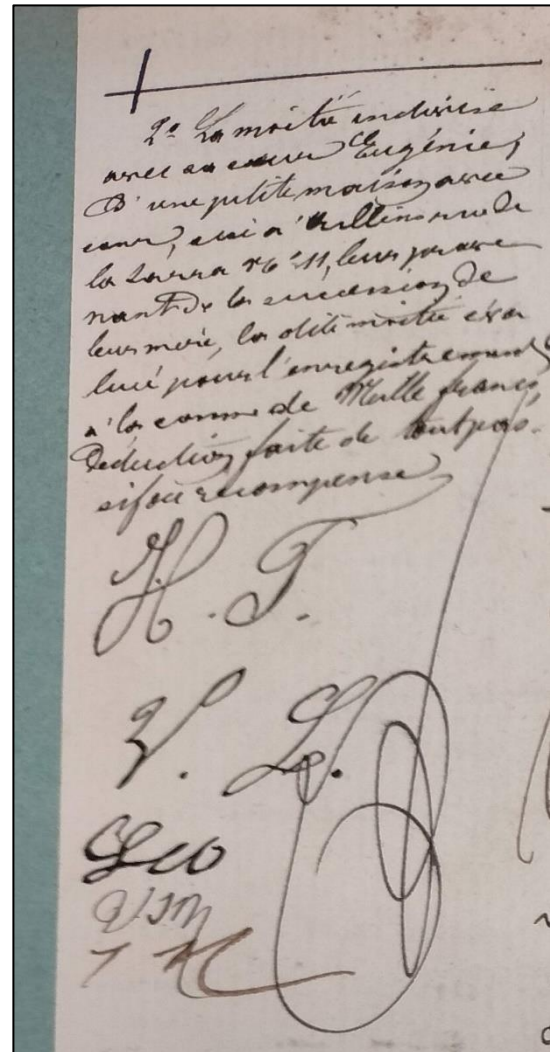 2º La moitié indivise
avec sa sœur Eugénie,
D'une petite maison avec
cour, sis à Oullins rue de
la Sarra nº 11, leur prove
nant de la succession de
leur mère, la dite moitié éva
luée pour l'enregistrement
à la somme de Mille francs,
Déduction faite de tout pas-
sif ou récompense
H. T.
V. L.